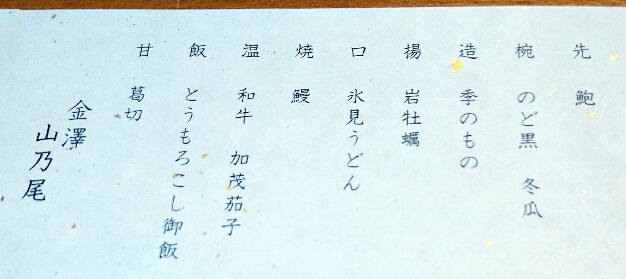 先 鮑
椀 のど黒 冬瓜
造 季のもの
揚 岩牡蠣
口 氷見うどん
焼 鰻
温 和牛 加茂茄子
飯 とうもろこし御飯
甘 葛切
金澤
山乃尾